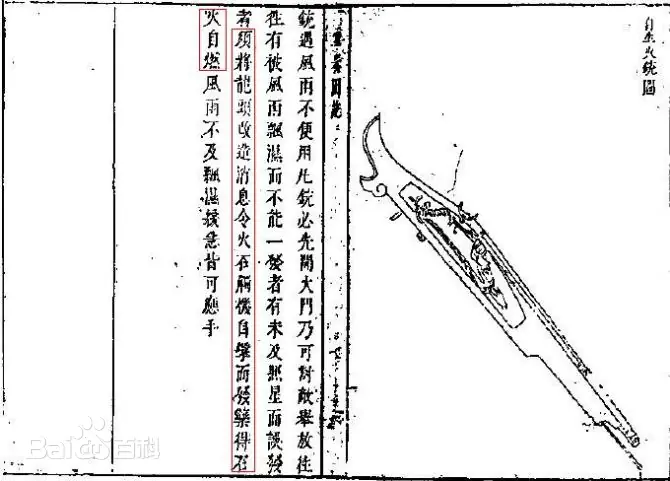 自生火銃圖
軍器圖說
銃遇風雨不便用凡銃必先開火門乃可對敵舉放徃
徃有被風雨飄濕而不能一發者有未及照星而誤發
者須將龍頭改造消息令火石觸機自擊而發藥得石
火自燃風雨不及飄濕緩急皆可應手
Baidu百科